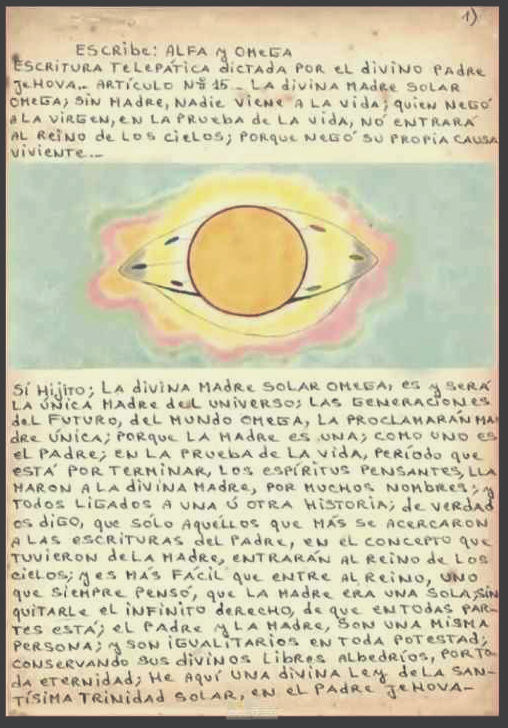 1)
ESCRIBE: ALFA y OMEGA
ESCRITURA TELEPÁTICA DICTADA POR EL DIVINO PADRE
JEHOVA.- ARTÍCULO Nº 15.- LA DIVINA MADRE SOLAR
OMEGA; SIN MADRE, NADIE VIENE A LA VIDA; QUIEN NEGÓ
A LA VIRGEN, EN LA PRUEBA DE LA VIDA, NO ENTRARÁ
AL REINO DE LOS CIELOS; PORQUE NEGÓ SU PROPIA CAUSA
VIVIENTE.-
SÍ HIJITO; LA DIVINA MADRE SOLAR OMEGA, ES y SERÁ
LA ÚNICA MADRE DEL UNIVERSO; LAS GENERACIONES
DEL FUTURO, DEL MUNDO OMEGA, LA PROCLAMARÁN MA
DRE ÚNICA; PORQUE LA MADRE ES UNA; COMO UNO ES
EL PADRE; EN LA PRUEBA DE LA VIDA, PERÍODO QUE
ESTÁ POR TERMINAR, LOS ESPÍRITUS PENSANTES, LLA
MARON A LA DIVINA MADRE, POR MUCHOS NOMBRES; y
TODOS LIGADOS A UNA Ú OTRA HISTORIA; DE VERDAD
OS DIGO, QUE SÓLO AQUÉLLOS QUE MÁS SE ACERCARON
A LAS ESCRITURAS DEL PADRE, EN EL CONCEPTO QUE
TUVIERON DE LA MADRE, ENTRARÁN AL REINO DE LOS
CIELOS; y ES MÁS FÁCIL QUE ENTRE AL REINO, UNO
QUE SIEMPRE PENSÓ, QUE LA MADRE ERA UNA SOLA, SIN
QUITARLE EL INFINITO DERECHO, DE QUE EN TODAS PAR-
TES ESTÁ; EL PADRE y LA MADRE, SON UNA MISMA
PERSONA; y SON IGUALITARIOS EN TODA POTESTAD;
CONSERVANDO SUS DIVINOS LIBRES ALBEDRÍOS, POR TO-
DA ETERNIDAD; HE AQUÍ UNA DIVINA LEY DE LA SAN-
TÍSIMA TRINIDAD SOLAR, EN EL PADRE JEHOVA-